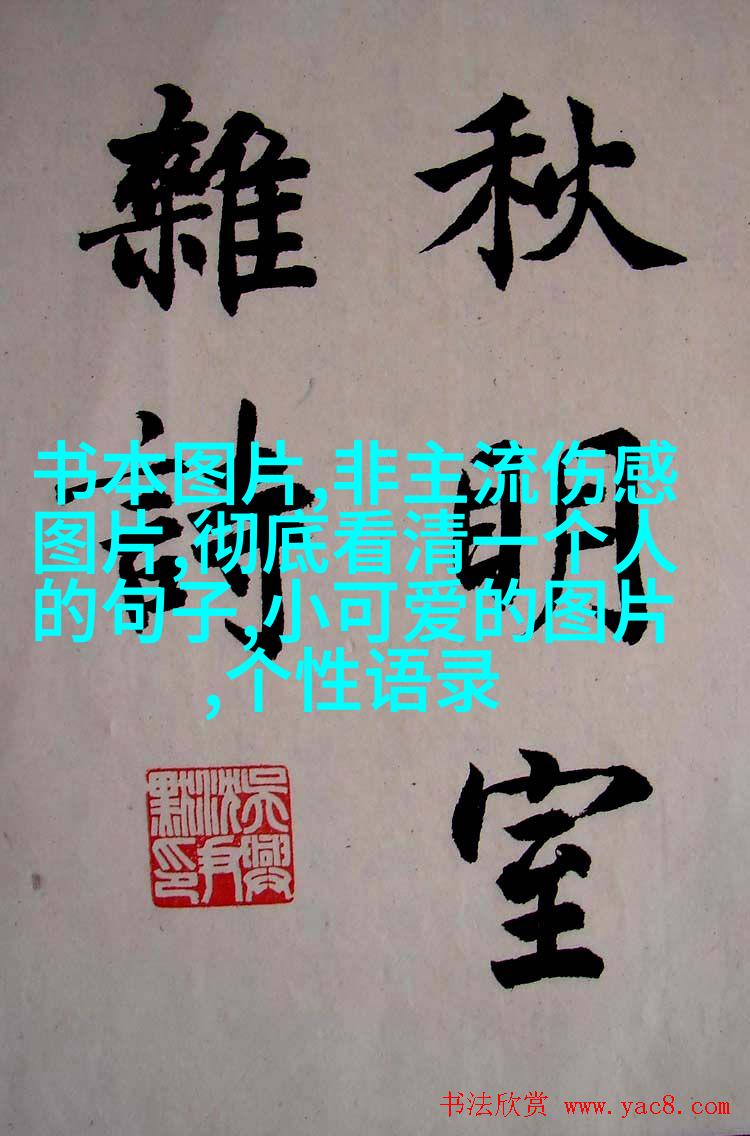 秋明室
雜詩
书本图片,非主流伤感
图片,彻底看清一个人
的句子,小可爱的图片
,个性语录
吳興
沈尹
默印
书法欣赏 www.yac8.com